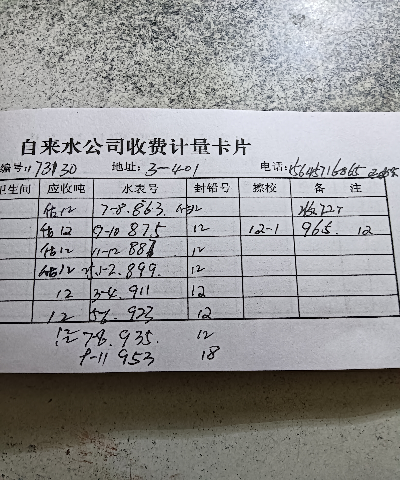 自来水公司收费计量卡片
编号: 73130 地址: 3-401 电话: 15645716865
卫生间 应收吨 水表号 封铅号 擦校 备 注
估12 7-8. 863. 12
估12 9-10 875 12 12-1 965. 12
估12 11-12 887 12
估12 1-2. 899. 12
12 3-4. 911 12
12 5-6. 923 12
12 7-8. 935. 12
9-11 953 18